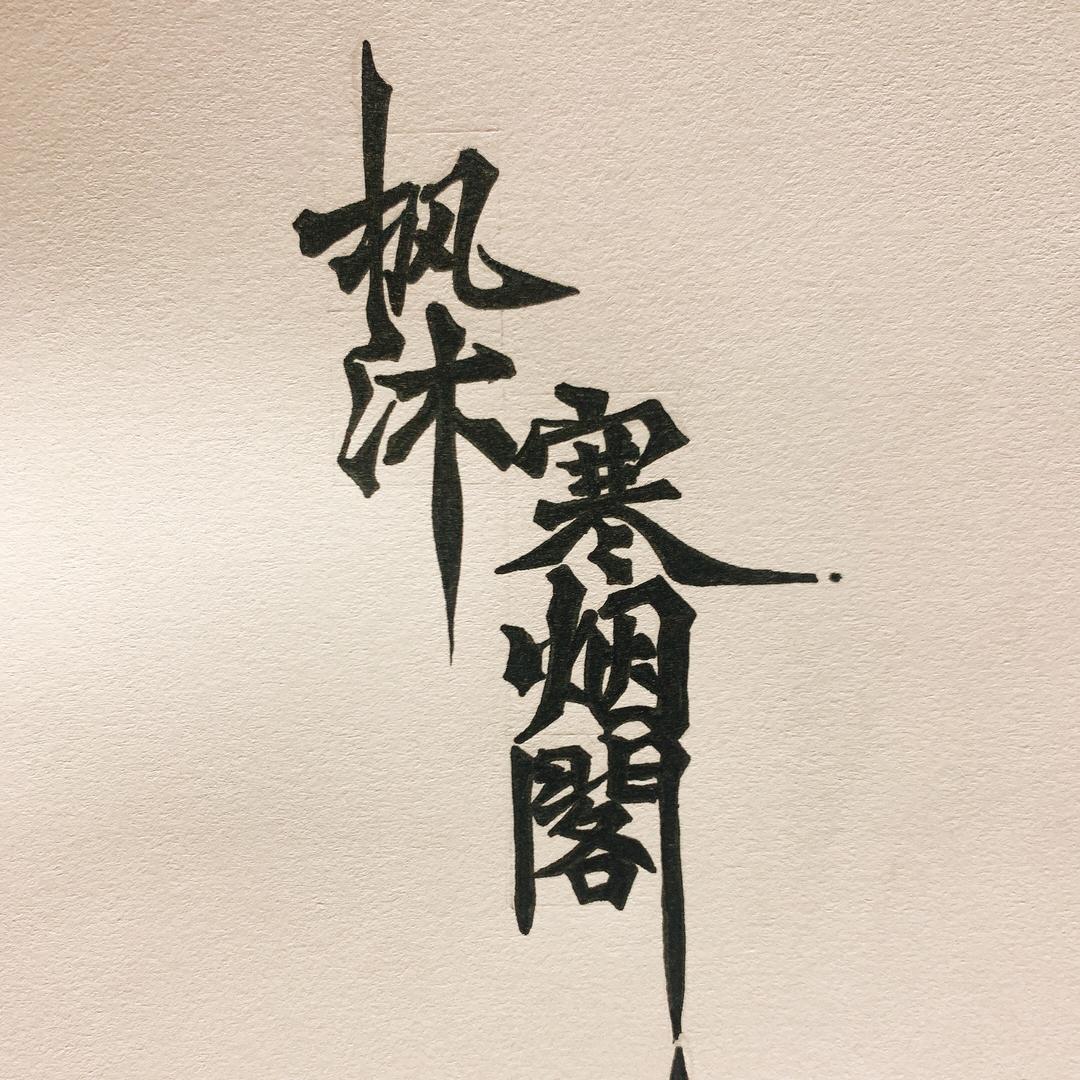 枫沐
寒烟閣